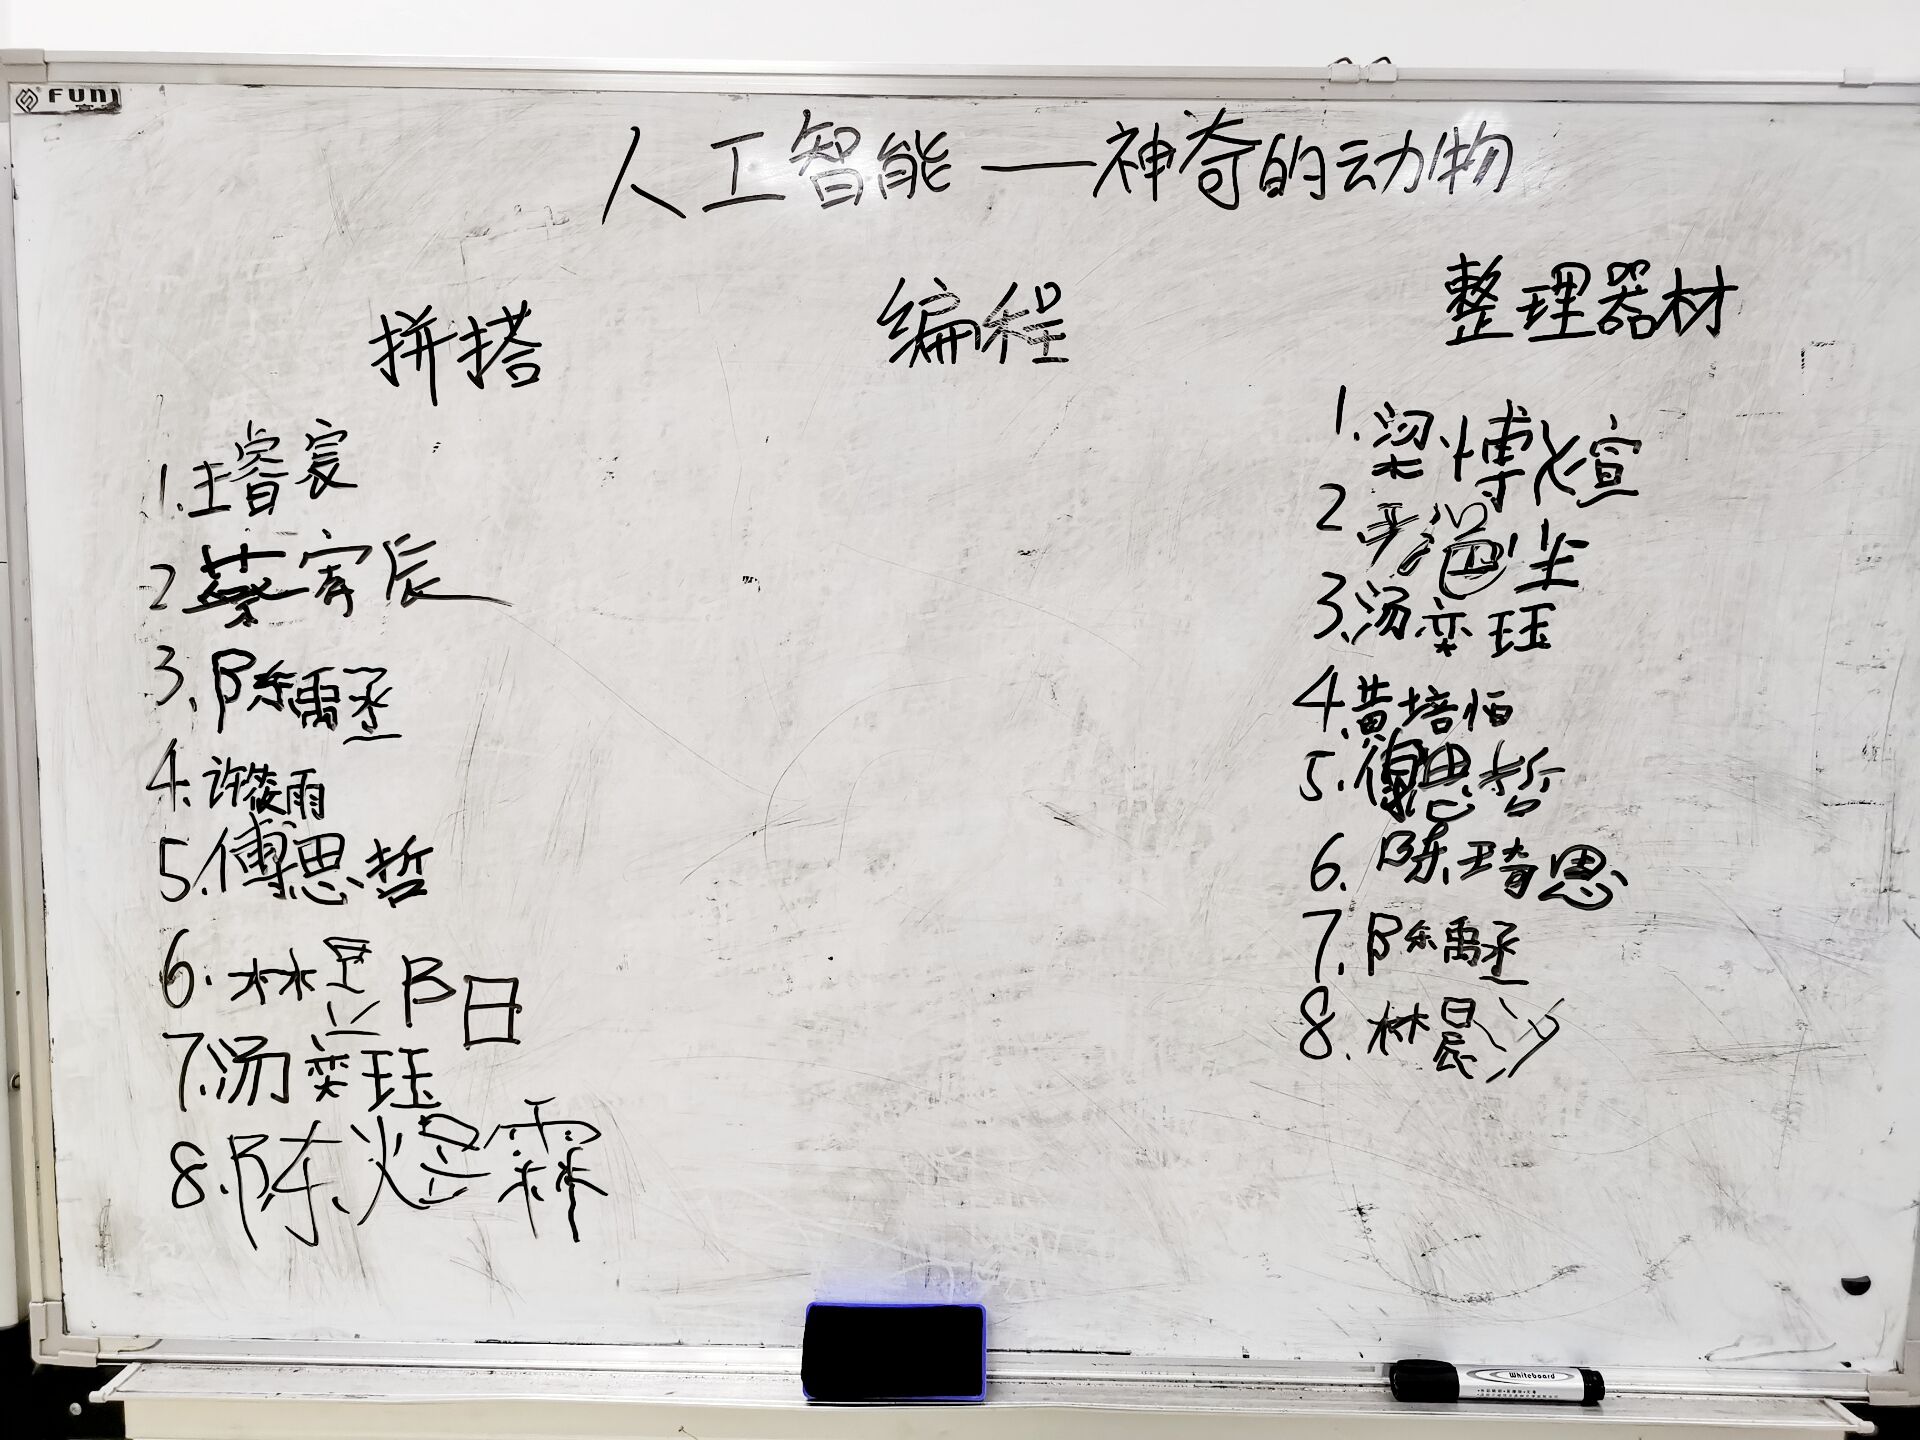 FUNI
人工智能——神奇的动物
拼搭
编程
整理器材
1.王睿宸
2 蔡宥辰
3.陈禹丞
4.许筱雨
5.傅思哲
6.林昱阳
7.汤奕珏
8.陈煜霖
1.梁博煊
2
3.汤奕珏
4.黄培恒
5.傅思哲
6.陈琦恩
7.陈禹丞
8.林晨汐
Whiteboard